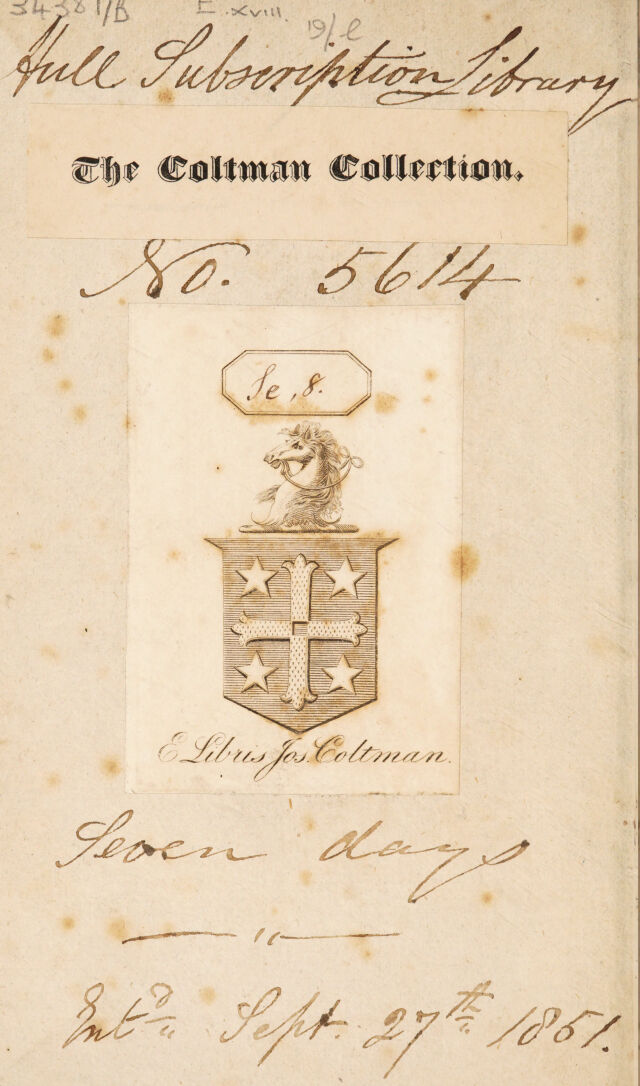 34381/B E.xviii. 19/l
Hull Subscription Library
The Coltman Collection.
No. 5614
Se, 8.
E Libris Jos. Coltman.
Seven days
Entd Sept. 27th 1851.